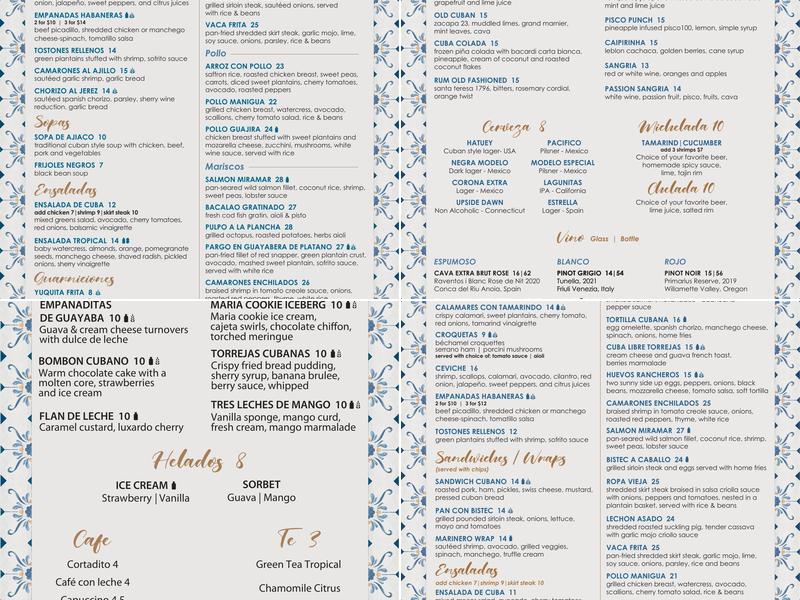 onion, jalapeño, sweet peppers, and citrus juices
EMPANADAS HABANERAS
2 for $10 | 3 for $14
beef picadillo, shredded chicken or manchego
cheese-spinach, tomatillo salsa
TOSTONES RELLENOS 14
green plantains stuffed with shrimp, sofrito sauce
CAMARONES AL AJILLO 15
sautéed garlic shrimp, garlic bread
CHORIZO AL JEREZ 14
sautéed spanish chorizo, parsley, sherry wine
reduction, garlic bread
Sopas
SOPA DE AJIACO 10
traditional cuban style soup with chicken, beef,
pork and vegetables
FRIJOLES NEGROS 7
black bean soup
Ensaladas
ENSALADA DE CUBA 12
add chicken 7|shrimp 9|skirt steak 10
mixed greens salad, avocado, cherry tomatoes,
red onions, balsamic vinaigrette
ENSALADA TROPICAL 14
baby watercress, almonds, orange, pomegranate
seeds, manchego cheese, shaved radish, pickled
onions, sherry vinaigrette
Guarniciones
YUQUITA FRITA 8
grilled shrimp, sautéed onions, served
with rice & beans
VACA FRITA 25
pan-fried shredded skirt steak, garlic mojo, lime,
soy sauce, onions, parsley, rice & beans
Pollo
ARROZ CON POLLO 23
saffron rice, roasted chicken breast, sweet peas,
carrots, diced sweet plantains, cherry tomatoes,
avocado, roasted peppers
POLLO MANIGUA 22
grilled chicken breast, watercress, avocado,
scallions, cherry tomato salad, rice & beans
POLLO GUAJIRA 24
chicken breast stuffed with sweet plantains and
mozarella cheese, zucchini, mushrooms, white
wine sauce, served with rice
Mariscos
SALMON MIRAMAR 28
pan-seared wild salmon fillet, coconut rice, shrimp,
sweet peas, lobster sauce
BACALAO GRATINADO 27
fresh cod fish gratin, aioli & pisto
PULPO A LA PLANCHA 28
grilled octopus, roasted potatoes, herbs aioli
PARGO EN GUAYABERA DE PLATANO 27
pan-fried fillet of red snapper, green plantain crust,
avocado, mashed sweet plantain, sofrito sauce,
served with white rice
CAMARONES ENCHILADOS 26
braised shrimp in tomato creole sauce, onions,
roasted red peppers, thyme, white rice
grapefruit and lime juice
OLD CUBAN 15
zacapa 23, muddled limes, grand marnier,
mint leaves, cava
CUBA COLADA 15
frozen piña colada with bacardi carta blanca,
pineapple, cream of coconut and roasted
coconut flakes
RUM OLD FASHIONED 15
santa teresa 1796, bitters, rosemary cordial,
orange twist
mint and lime juice
PISCO PUNCH 15
pineapple infused pisco100, lemon, simple syrup
CAIPIRINHA 15
leblon cachaca, golden berries, cane syrup
SANGRIA 13
red or white wine, oranges and apples
PASSION SANGRIA 14
white wine, passion fruit, pisco, fruits, cava
Cerveza 8
HATUEY
Cuban style lager- USA
NEGRA MODELO
Dark lager - Mexico
CORONA EXTRA
Lager - Mexico
UPSIDE DAWN
Non Alcoholic - Connecticut
PACIFICO
Pilsner - Mexico
MODELO ESPECIAL
Pilsner - Mexico
LAGUNITAS
IPA - California
ESTRELLA
Lager - Spain
Michelada 10
TAMARIND|CUCUMBER
add 3 shrimps $7
Choice of your favorite beer,
homemade spicy sauce,
lime, tajin rim
Chelada 10
Choice of your favorite beer,
lime juice, salted rim
Vino Glass | Bottle
ESPUMOSO
CAVA EXTRA BRUT ROSE 16|62
Raventos i Blanc Rose de Nit 2020
Conca del Riu Anoia, Spain
BLANCO
PINOT GRIGIO 14|54
Tunella, 2021
Friuli Venezia, Italy
ROJO
PINOT NOIR 15|56
Primarius Reserve, 2019
Willamette Valley, Oregon
EMPANADITAS
DE GUAYABA 10
Guava & cream cheese turnovers
with dulce de leche
BOMBON CUBANO 10
Warm chocolate cake with a
molten core, strawberries
and ice cream
FLAN DE LECHE 10
Caramel custard, luxardo cherry
MARIA COOKIE ICEBERG 10
Maria cookie ice cream,
cajeta swirls, chocolate chiffon,
torched meringue
TORREJAS CUBANAS 10
Crispy fried bread pudding,
sherry syrup, banana brulee,
berry sauce, whipped
TRES LECHES DE MANGO 10
Vanilla sponge, mango curd,
fresh cream, mango marmalade
Helados 8
ICE CREAM
Strawberry | Vanilla
SORBET
Guava | Mango
Cafe
Cortadito 4
Café con leche 4
Capuccino 4.5
Te 3
Green Tea Tropical
Chamomile Citrus
CALAMARES CON TAMARINDO 14
crispy calamari, sweet plantains, cherry tomato,
red onions, tamarind vinaigrette
CROQUETAS 9
béchamel croquettes
serrano ham | porcini mushrooms
served with choice of: tomato sauce | aioli
CEVICHE 16
shrimp, scallops, calamari, avocado, cilantro, red
onion, jalapeño, sweet peppers, and citrus juices
EMPANADAS HABANERAS
2 for $10 | 3 for $12
beef picadillo, shredded chicken or manchego
cheese-spinach, tomatillo salsa
TOSTONES RELLENOS 12
green plantains stuffed with shrimp, sofrito sauce
Sandwiches / Wraps
(served with chips)
SANDWICH CUBANO 14
roasted pork, ham, pickles, swiss cheese, mustard,
pressed cuban bread
PAN CON BISTEC 14
grilled pounded sirloin steak, onions, lettuce,
mayo and tomatoes
MARINERO WRAP 14
sautéed shrimp, avocado, grilled veggies,
spinach, manchego, truffle cream
Ensaladas
add chicken 7|shrimp 9|skirt steak 10
ENSALADA DE CUBA 11
pepper sauce
TORTILLA CUBANA 16
egg omelette, spanish chorizo, manchego cheese,
spinach, onions, home fries
CUBA LIBRE TORREJAS 15
cream cheese and guava french toast,
berries marmalade
HUEVOS RANCHEROS 15
two sunny side up eggs, peppers, onions, black
beans, mozzarella cheese, tomato salsa, soft tortilla
CAMARONES ENCHILADOS 25
braised shrimp in tomato creole sauce, onions,
roasted red peppers, thyme, white rice
SALMON MIRAMAR 27
pan-seared wild salmon fillet, coconut rice, shrimp,
sweet peas, lobster sauce
BISTEC A CABALLO 24
grilled sirloin steak and eggs served with home fries
ROPA VIEJA 25
shredded skirt steak braised in salsa criolla sauce
with onions, peppers and tomatoes, nested in a
plantain basket, served with rice & beans
LECHON ASADO 24
shredded roasted suckling pig, tender cassava
with garlic mojo criollo sauce
VACA FRITA 25
pan-fried shredded skirt steak, garlic mojo, lime,
soy sauce, onions, parsley, rice and beans
POLLO MANIGUA 21
grilled chicken breast, watercress, avocado,
scallions, cherry tomato salad, rice & beans